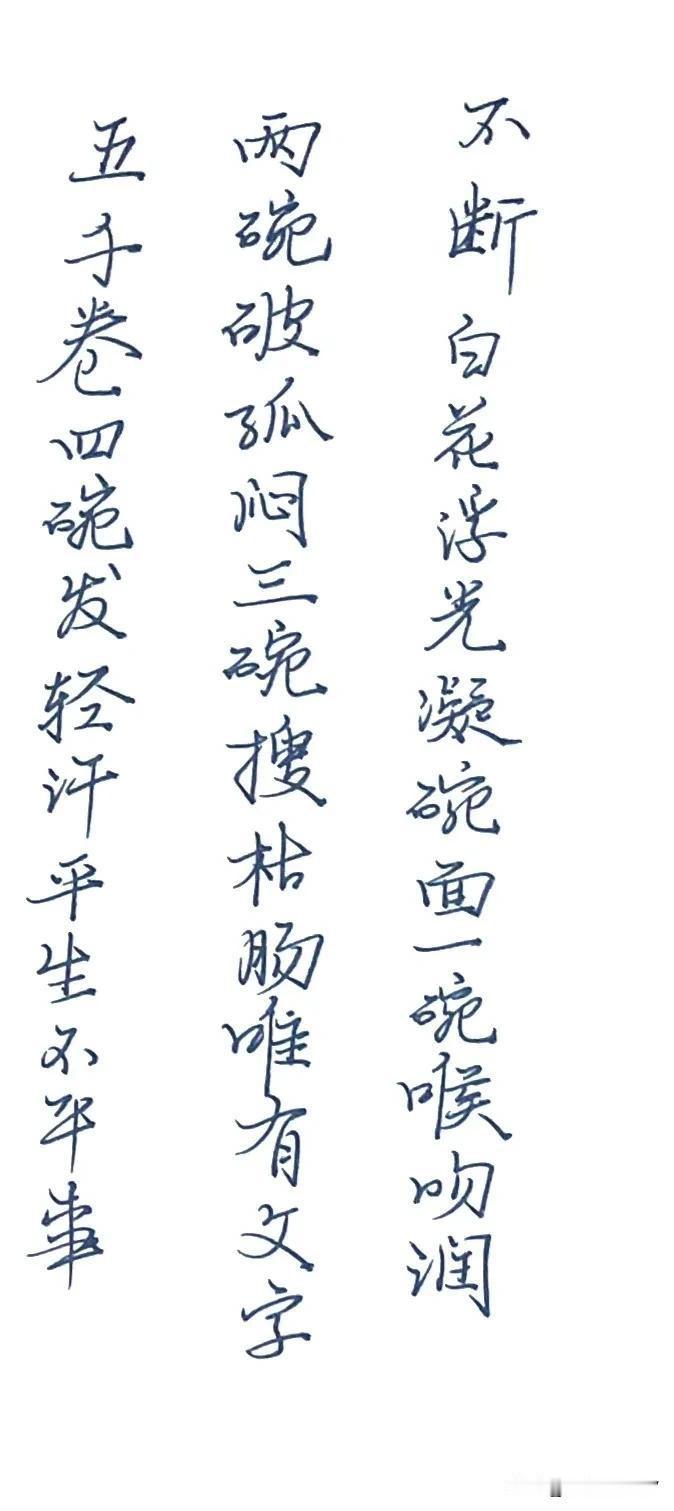 不断白花浮光凝碗面一碗喉吻润
两碗破孤闷三碗搜枯肠唯有文字
五千卷四碗发轻汗平生不平事